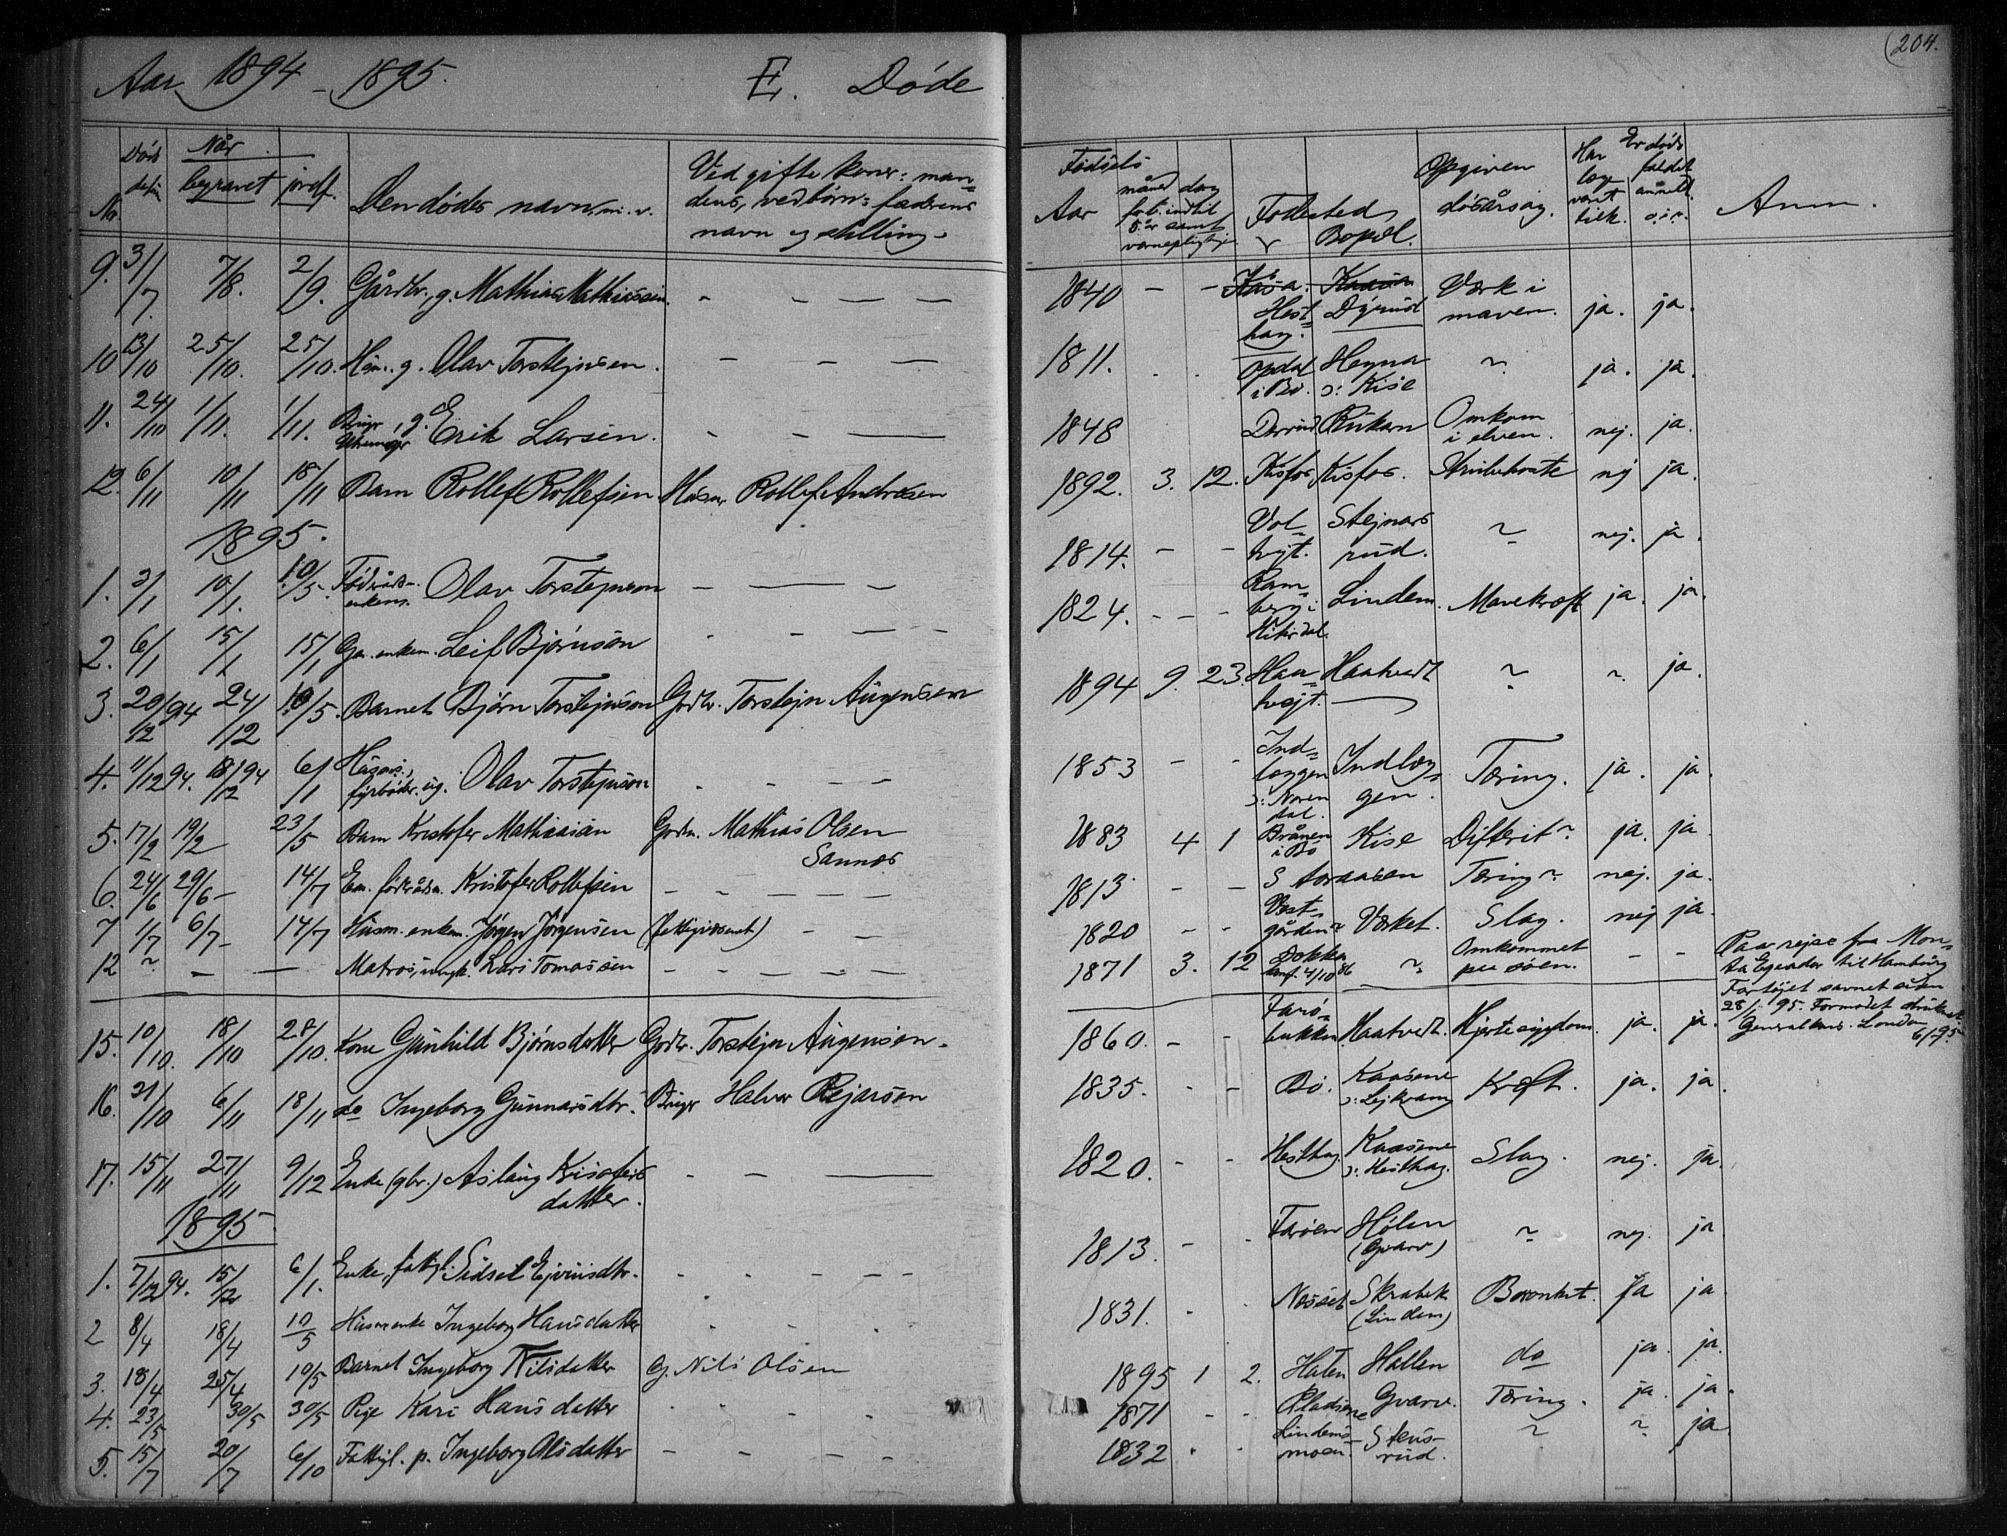 Aar 1894 - 1895. E. Døde
(204.
No. Døds datum Når begravet jordf. Den dødes navn m. v. Ved gifte koner: mandens, ved børn: faderens navn og stilling.
Fødsels Aar måned dag Fødested Bopæl. Opgiven dødsårsag. Har læge været tilk. Er dødsfaldet anmeldt Anm.
9. 3/7. 7/8. 2/9. Gårdbr., g. Mathias Mathiassen. - - - - 1840 - - Hesthag. Dyrud Værk i maven. ja. ja.
10 13/10 25/10. 25/10. Hsm. g. Olav Torstejnsen. - - - 1811. Opdal i Bø. Hegna ɔ: Kise ~ ja. ja.
11. 24/10 1/11. 1/11. Erik Larsen. - - - 1848 Rukan Omkom i elven. nej. ja.
12. 6/11 10/11 18/11 Barn Rollef Rollefsen Husm. Rollef Andersen 1892. 3. 12. Kisfos Kisfos. Strubehoste nej ja.
1895.
1. 3/1 10/1. 10/5. Føderåds- enkem. Olav Torstejnson - - - 1814. - - Stejnarsrud. ~ nej. ja.
2. 6/1 15/1 15/1 Gm. enkem. Leif Bjørnson - - - - 1824. - - Ramberg i Hiterdal. Lindem. Mavekræft ja. ja.
3. 20/12 94 24/12 10/5. Barnet Bjørn Torstejnson Grdbr. Torstejn Augensen 1894 9. 23. Haatvejt. Haatvedt ~ ~ ja.
4. 11/12 94. 18/12 94 6/1 ug. Olav Torstejnson - - - 1853 - - Indlæggen ɔ: Norendal. Indlæggen. Tæring. ja. ja.
5. 17/2 19/2 23/5 Barn Kristofer Mathiasson Grdm. Mathias Olsen Sannes 1883 4 1 i Bø Kise Difterit ja. ja.
6. 24/6 29/6 - 14/7 Em. føderådsm. Kristofer Rollefsen - - - - 1813. - - Staraasen Tæring nej. ja.
7 1/7 6/7 - 14/7 Husm. enkem. Jørgen Jørgensen (fattigvæsenet) - - 1820 - - Vestgården Værket. Slag. nej ja.
12 ~ - - Matros, ungk. Lars Tomassen - - - - - 1871 3. 12 Dokka 4/10 86 ~ Omkommet paa søen. - -
Paa rejse fra Monta Egender til Hamburg
Fartøjet savnet siden
28/1 95. Formodet druknet
Generalkons. London
6/7 95
15. 10/10. 18/10 28/10. Kone Gunhild Bjørnsdatter Grdbr. Torstejn Augensen. 1860. - - Farøbukken Haatvedt. Hjertesygdom. ja. ja.
16. 31/10 6/11 18/11 do Ingeborg Gunnarsdtr. Bruger Halvor Rejarsen 1835. - - Bø. Kaasene ɔ: Lejkvam Kræft. ja. ja.
17. 15/11 27/11 9/12 Enke (gbr.) Aslaug Kristofersdatter. - - - 1820. - - Hesthag. Kaasene ɔ: Hesthag. Slag. nej. ja.
1895
1. 7/12 94. 15/12 6/1. Enke, fattigl. Sidsel Ejvinsdtr. - - - - - 1813. - - Farøen Hølen (Gvarv) ~ nej. ja
2 8/4 18/4 10/5 Husm enke Ingeborg Hansdatter - - - - 1831. - - Næsset Skrabek (Lindem) Bronkit. ja ja
3. 18/4 25/4 10/5 Barnet Ingeborg Nilsdatter G. Nils Olsen 1895 1 2. Haten Hallen do ja. ja.
4. 23/5 30/5 30/5 Pige Kari Hansdatter - - - - 1871 - - Gvarv. Tæring. ja. ja.
5. 15/7 20/7 6/10 Fattigl. p. Ingeborg Olsdatter - - - - 1832 - - Lindemsmoen. Stensrud. ~ ~ ja